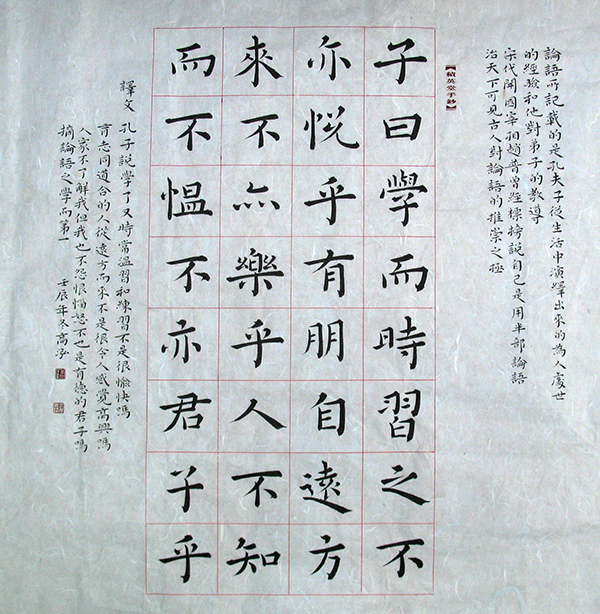 論語所記載的是孔夫子從生活中演繹出來的為人處世
的經驗和他對弟子的教導
宋代開國宰相趙普曾經標榜說自己是用半部論語
治天下可見古人對論語的推崇之極
【積英堂手鈔】
子曰學而時習之不
亦悅乎有朋自遠方
來不亦樂乎人不知
而不愠不亦君子乎
譯文 孔子說學了又時常溫習和練習不是很愉快嗎
有志同道合的人從遠方而來不是很令人感覺高興嗎
人家不了解我但我也不怨恨惱怒不也是有德的君子嗎
摘論語之學而第一 壬辰年冬高泓